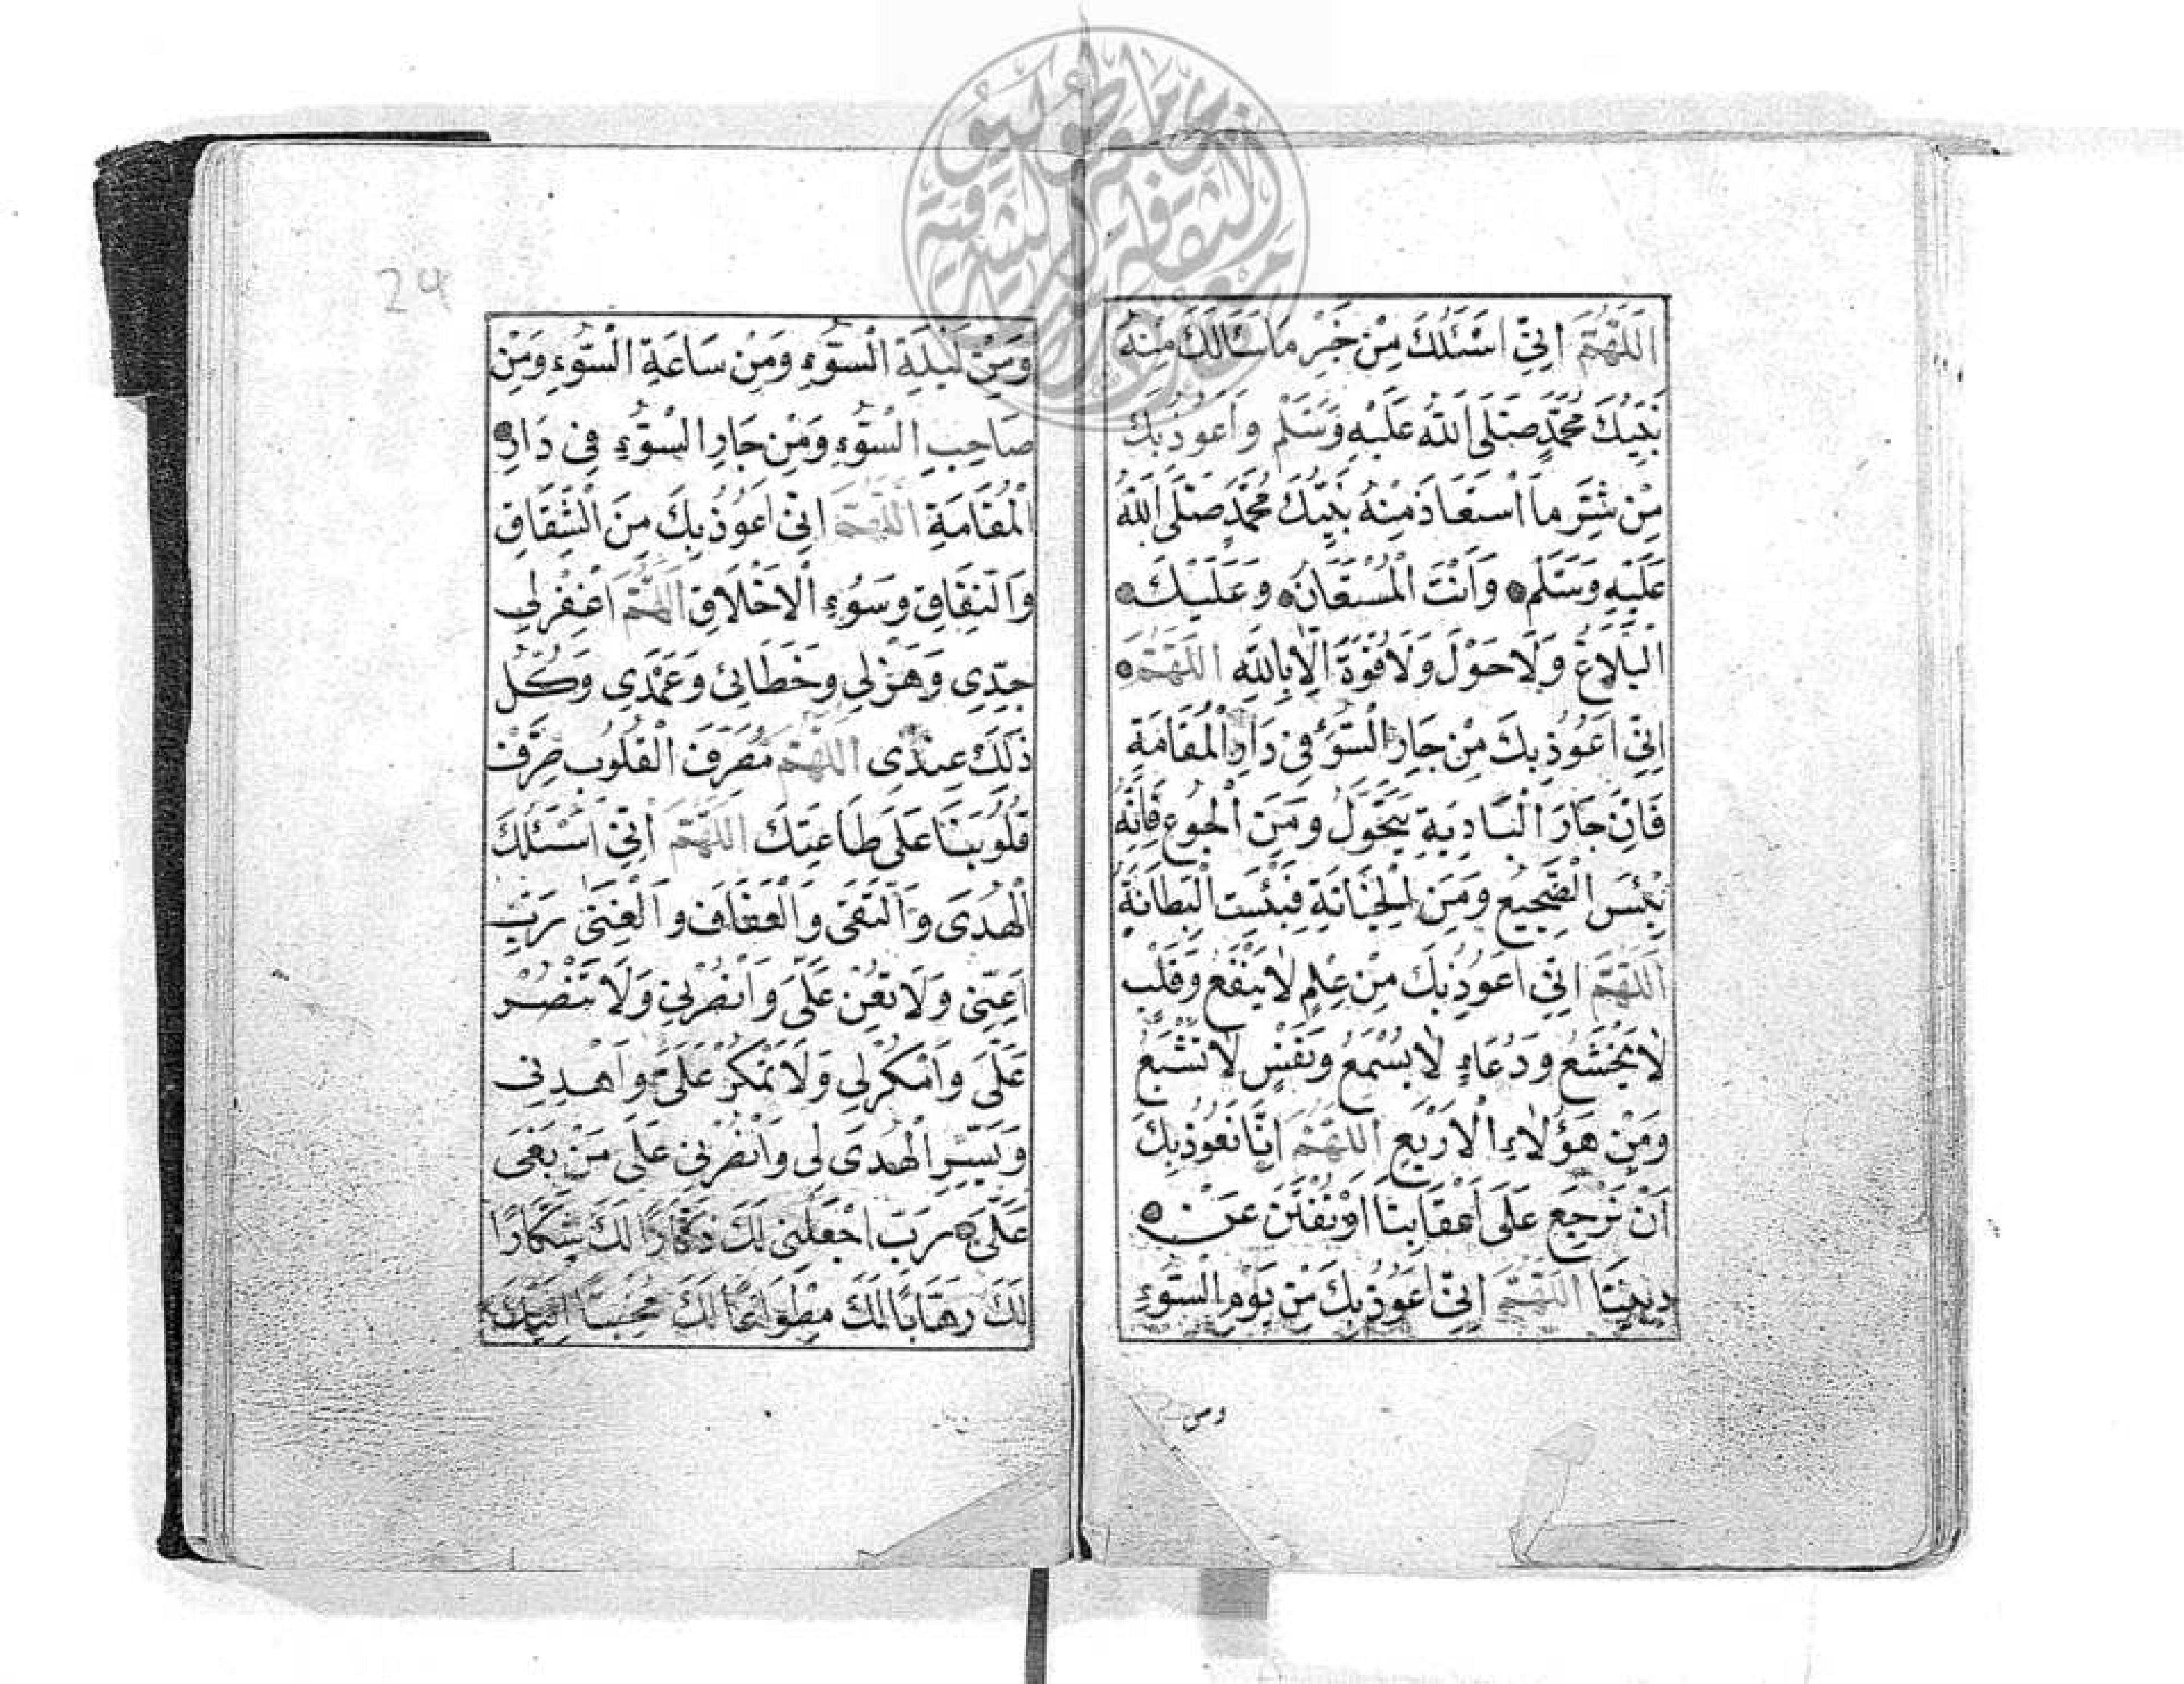 اَللّٰهُمَّ اِنِّي اَسْئَلُكَ مِنْ خَيْرِ مَا سَئَالَكَ مِنْهُ
نَبِيُّكَ مُحَمَّدٍ صَلَّى اللّٰهُ عَلَيْهِ وَسَلَّمْ وَاَعُوذُ بِكَ
مِنْ شَرِّ مَا اسْتَعَاذَ مِنْهُ نَبِيُّكَ مُحَمَّدٍ صَلَّى اللّٰهُ
عَلَيْهِ وَسَلَّمْ وَاَنْتَ الْمُسْتَعَانُ وَعَلَيْكَ
الْبَلَاغُ وَلَا حَوْلَ وَلَا قُوَّةَ اِلَّا بِاللّٰهِ اللّٰهُمَّ
اِنِّي اَعُوذُ بِكَ مِنْ جَارِ السُّوْءِ فِي دَارِ الْمُقَامَةِ
فَاِنَّ جَارَ الْبَادِيَةِ يَتَحَوَّلُ وَمِنَ الْجُوعِ فَاِنَّهُ
بِئْسَ الضَّجِيعُ وَمِنَ الْخِيَانَةِ فَبِئْسَتِ الْبِطَانَةُ
اَللّٰهُمَّ اِنِّي اَعُوذُ بِكَ مِنْ عِلْمٍ لَا يَنْفَعُ وَقَلْبٍ
لَا يَخْشَعُ وَدُعَاءٍ لَا يُسْمَعُ وَنَفْسٍ لَا تَشْبَعُ
وَمِنْ هٰؤُلَاءِ الْاَرْبَعِ اللّٰهُمَّ اِنَّا نَعُوذُ بِكَ
اَنْ نَرْجِعَ عَلَى اَعْقَابِنَا اَوْ نُفْتَنَ عَنْ
دِينِنَا اللّٰهُمَّ اِنِّي اَعُوذُ بِكَ مِنْ يَوْمِ السُّوْءِ
ومن
24
وَمِنْ لَيْلَةِ السُّوْءِ وَمِنْ سَاعَةِ السُّوْءِ وَمِنْ
صَاحِبِ السُّوْءِ وَمِنْ جَارِ السُّوْءِ فِي دَارِ
الْمُقَامَةِ اللّٰهُمَّ اِنِّي اَعُوذُ بِكَ مِنَ الشِّقَاقِ
وَالنِّفَاقِ وَسُوْءِ الْاَخْلَاقِ اَللّٰهُمَّ اغْفِرْ لِي
جِدِّي وَهَزْلِي وَخَطَائِي وَعَمْدِي وَكُلُّ
ذٰلِكَ عِنْدِي اللّٰهُمَّ مُصَرِّفَ الْقُلُوبِ صَرِّفْ
قُلُوبَنَا عَلَى طَاعَتِكَ اللّٰهُمَّ اِنِّي اَسْئَلُكَ
الْهُدَى وَالتُّقَى وَالْعَفَافَ وَالْغِنَى رَبِّ
اَعِنِّي وَلَا تُعِنْ عَلَيَّ وَانْصُرْنِي وَلَا تَنْصُرْ
عَلَيَّ وَامْكُرْ لِي وَلَا تَمْكُرْ عَلَيَّ وَاهْدِنِي
وَيَسِّرِ الْهُدَى لِي وَانْصُرْنِي عَلَى مَنْ بَغَى
عَلَيَّ رَبِّ اجْعَلْنِي لَكَ ذَكَّارًا لَكَ شَكَّارًا
لَكَ رَهَّابًا لَكَ مِطْوَاعًا لَكَ مُخْبِتًا اِلَيْكَ